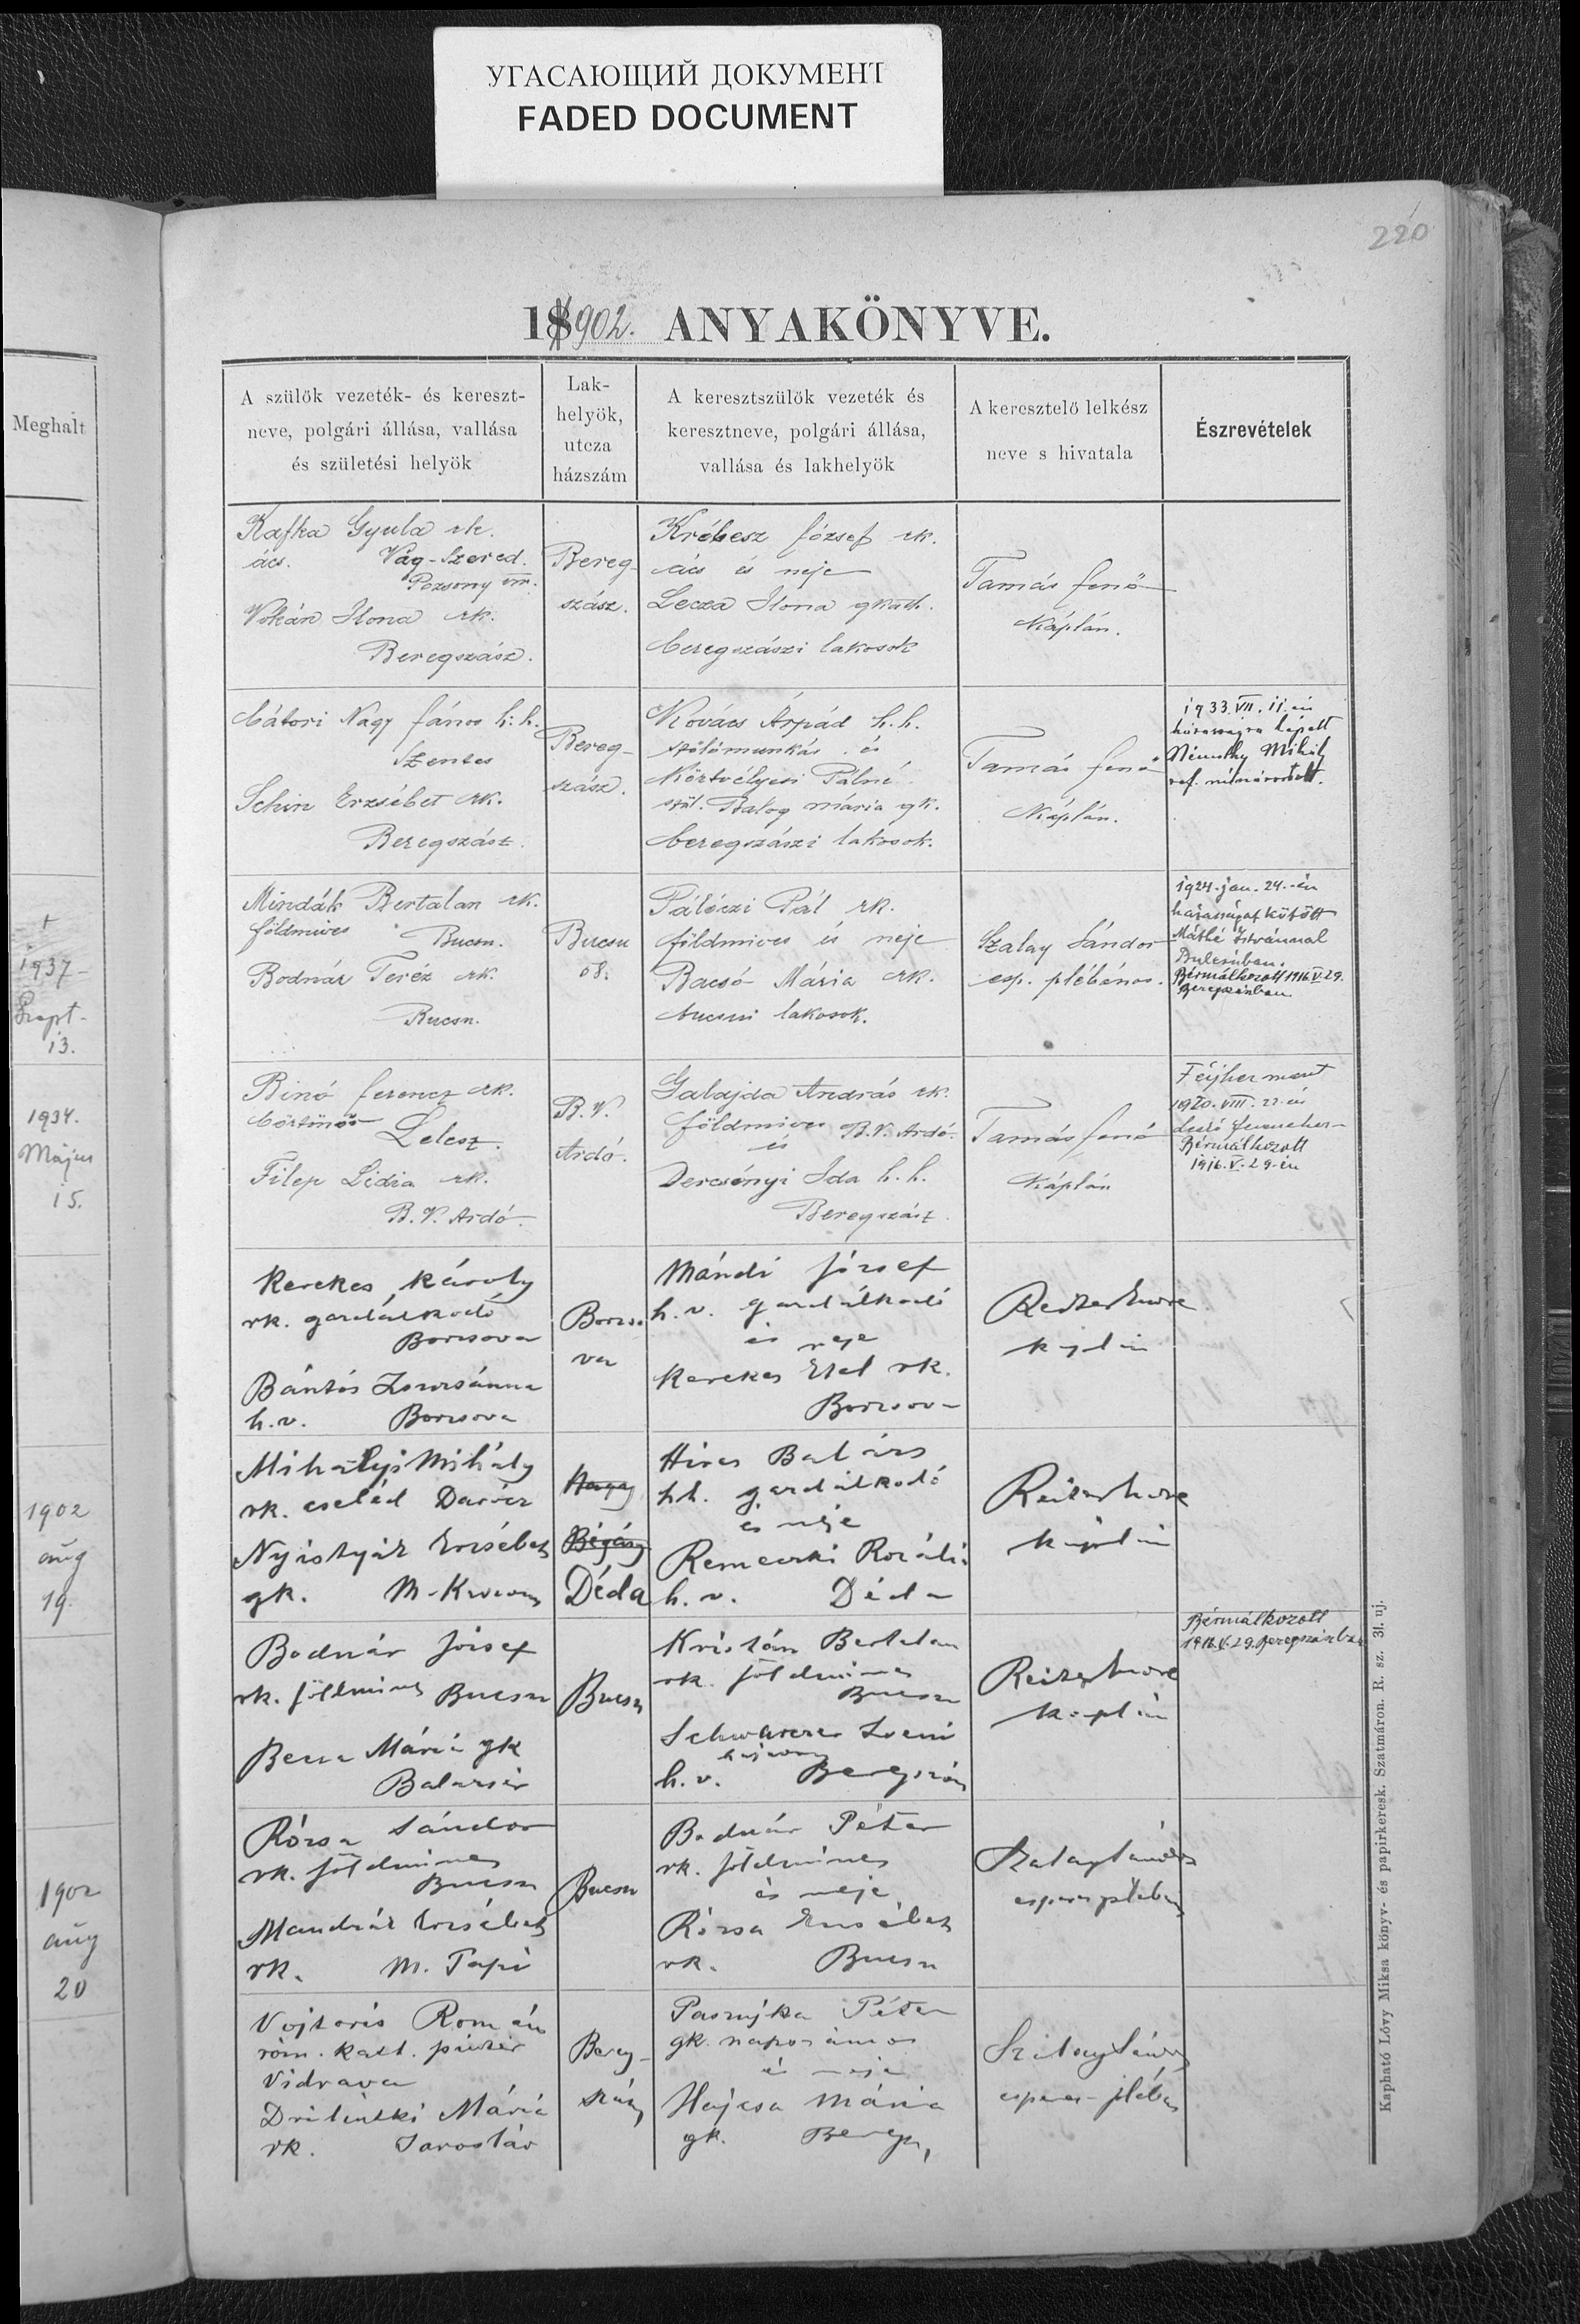 УГАСАЮЩИЙ ДОКУМЕНТ
FADED DOCUMENT
220
1902. ANYAKÖNYVE.
Meghalt
A szülők vezeték- és kereszt-
neve, polgári állása, vallása
és születési helyök
Lak-
helyök,
utcza
házszám
A keresztszülők vezeték és
keresztneve, polgári állása,
vallása és lakhelyök
A keresztelő lelkész
neve s hivatala
Észrevételek
Kafka Gyula rk.
ács. Vág-Szered.
Pozsony vm.
Vokán Ilona rk.
Beregszász.
Bereg-
szász.
Krébesz József rk.
ács és neje
Lecza Ilona gkath.
beregszászi lakosok
Tamás Jenő
Káplán.
Bátori Nagy János h.h.
Szentes
Schin Erzsébet rk.
Beregszász.
Bereg-
szász.
Kovács Árpád h.h.
szőlőmunkás és
Körtvélyesi Pálné
szül. Balog mária gk.
beregszászi lakosok.
Tamás Jenő
Káplán.
1933. VII. 11. én
házasságra lépett
Mihály
ref.
+
1937-
Szept-
13.
Mindák Bertalan rk.
földmives Bucsu.
Bodnár Teréz rk.
Bucsu.
Bucsu
08.
Pálóczi Pál rk.
földmives és neje
Bacsó Mária rk.
bucsui lakosok.
Szalay Sándor
esp. plébános.
1924. jan. 24.-én
házasságot kötött
Máthé Istvánnal
Bulcsúban.
Bérmálkozott 1916 V. 29.
Beregszászban
1934.
Május
15.
Binó Ferencz rk.
börtönőr
Lelesz.
Filep Lidia rk.
B.V. Ardó.
B.V.
Ardó.
Galajda András rk.
földmives B.V. Ardó.
és
Dercsényi Ida h.h.
Beregszász
Tamás Jenő
Káplán
Férjhez ment
1920. VIII. 22-én
Ferenchez-
Bérmálkozott
1916. V. 29-én
Kerekes Károly
rk. gazdálkodó
Borzsova
Bántós Zsuzsánna
h.v. Borzsova
Borzso
va
Mándi József
h.v. gazdálkodó
és neje
Kerekes Etel rk.
Borzsova
Reiter Imre
káplán
1902
aug
19.
Mihályi Mihály
rk. cseléd Darócz
Erzsébet
gk.
Bégány
Déda
Hires Balázs
h.h. gazdálkodó
és neje
Remeczki Rozália
h.v. Déda
Reiter Imre
káplán
Bodnár József
rk. földmives Bucsu
Mária gk
Balazsér
Bucsu
Kristán Bertalan
rk. földmives
Bucsu
Schwarczer
hajadon
h.v. Beregszász
Reiter Imre
káplán
Bérmálkozott
1916. V. 29. Beregszászban
1902
aug
20
Rózsa Sándor
rk. földmives
Bucsu
Mandzák Erzsébet
rk. M. Papi
Bucsu
Bodnár Péter
rk. földmives
és neje
Rózsa Erzsébet
rk. Bucsu
Szalay Sándor
esperes plebános
Vojtovis Román
róm. kath. pinczér
Vidrava
Drilinszki Mária
rk. Jaroslav
Bereg-
szász
Pasnyka Péter
gk. napszámos
és neje
Hajcsa Mária
gk. Beregsz,
Szalay Sándor
esperes-plébános
Kapható Lővy Miksa könyv- és papirkeresk. Szatmáron. R. sz. 31. uj.